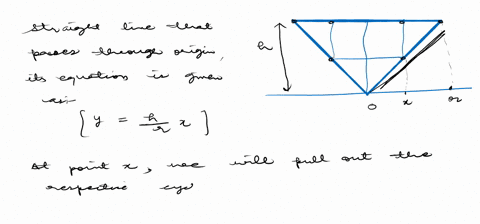 straight line that
passes through origin,
its equation is given
as:
[ y = h/r x ]
h
O
x
r
At point x, we will pull out the
respective cyc